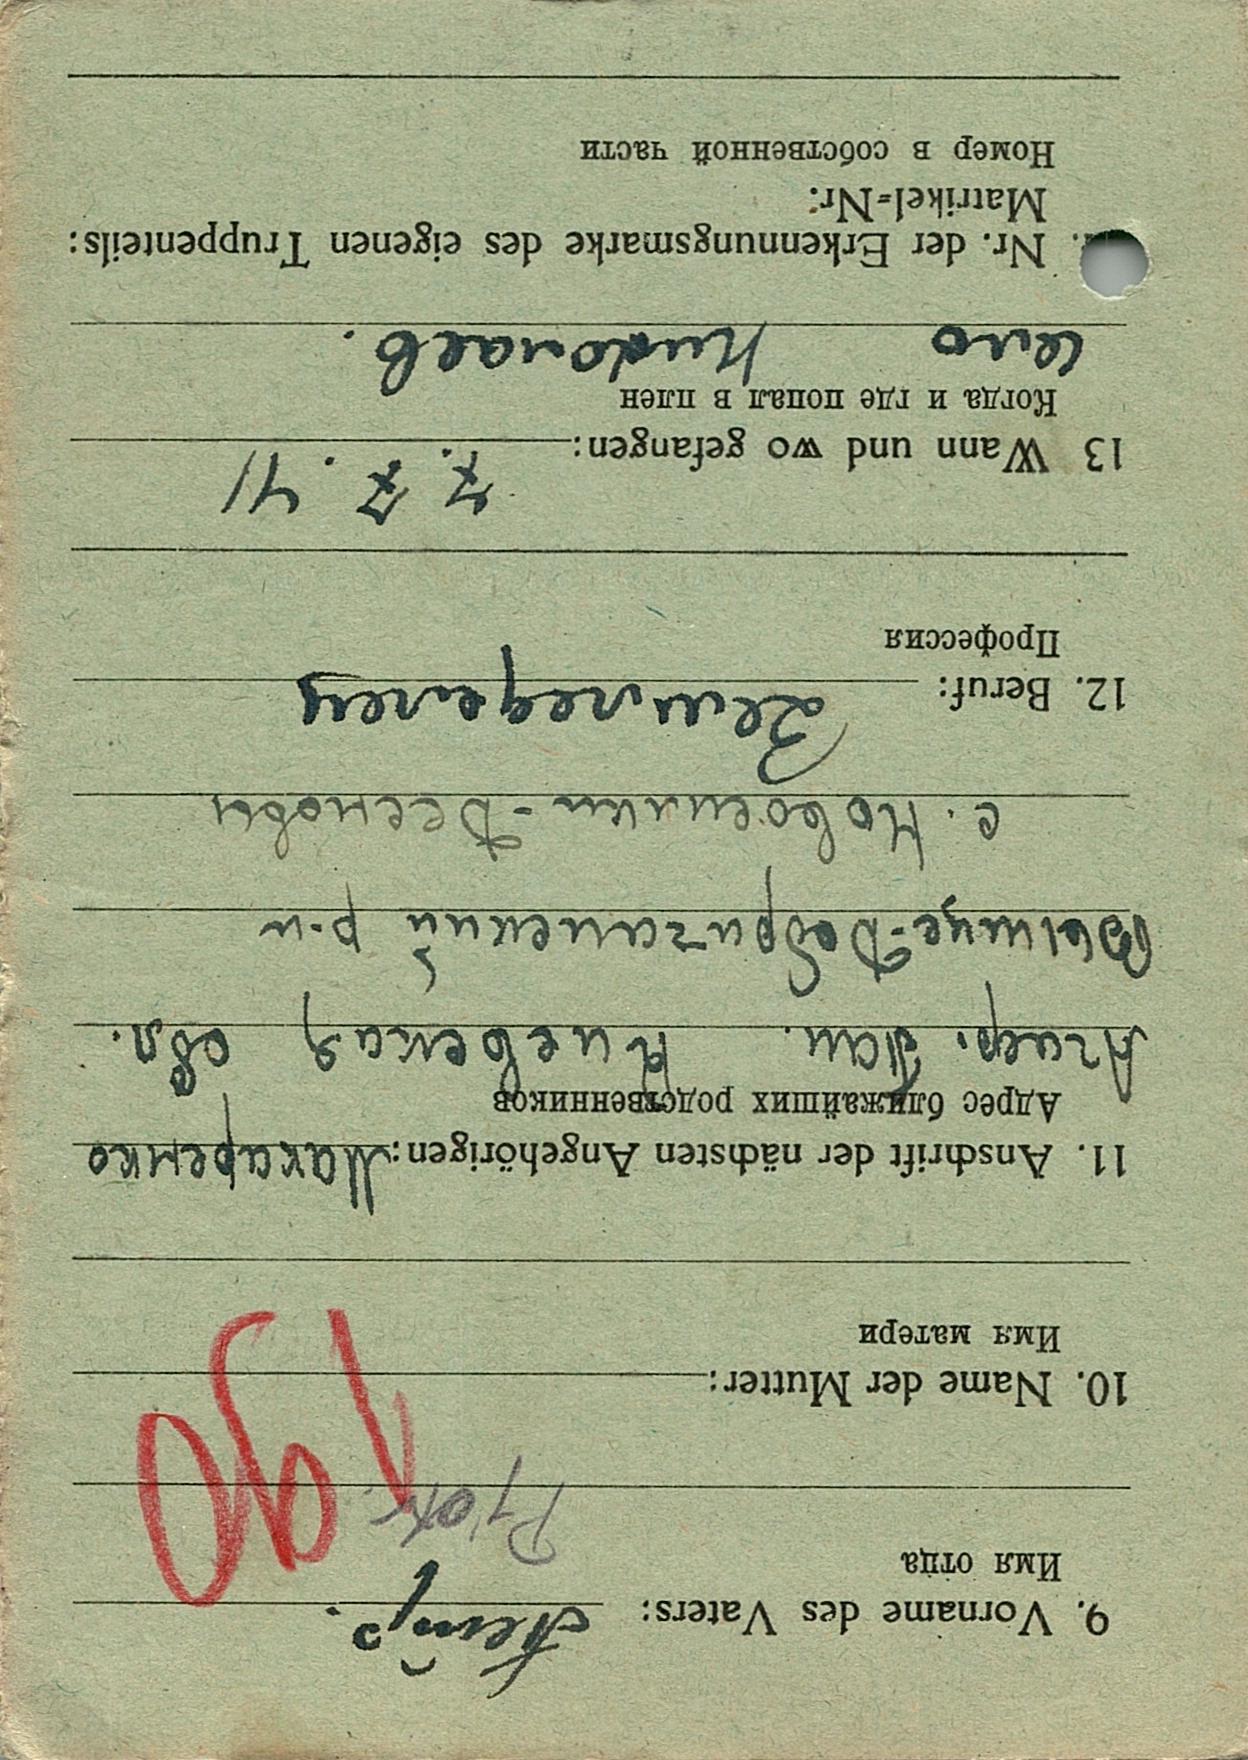 9. Vorname des Vaters: Петр.
Имя отца
Pjotr.
190
10. Name der Mutter:
Имя матери
11. Anschrift der nächsten Angehörigen: Макаренко
Адрес ближайших родственников
Киевская обл.
р-н
с.
12. Beruf: Земледелец
Профессия
13 Wann und wo gefangen: 7. 7. 41
Когда и где попал в плен
село Николаев.
Nr. der Erkennungsmarke des eigenen Truppenteils:
Matrikel=Nr:
Номер в собственной части